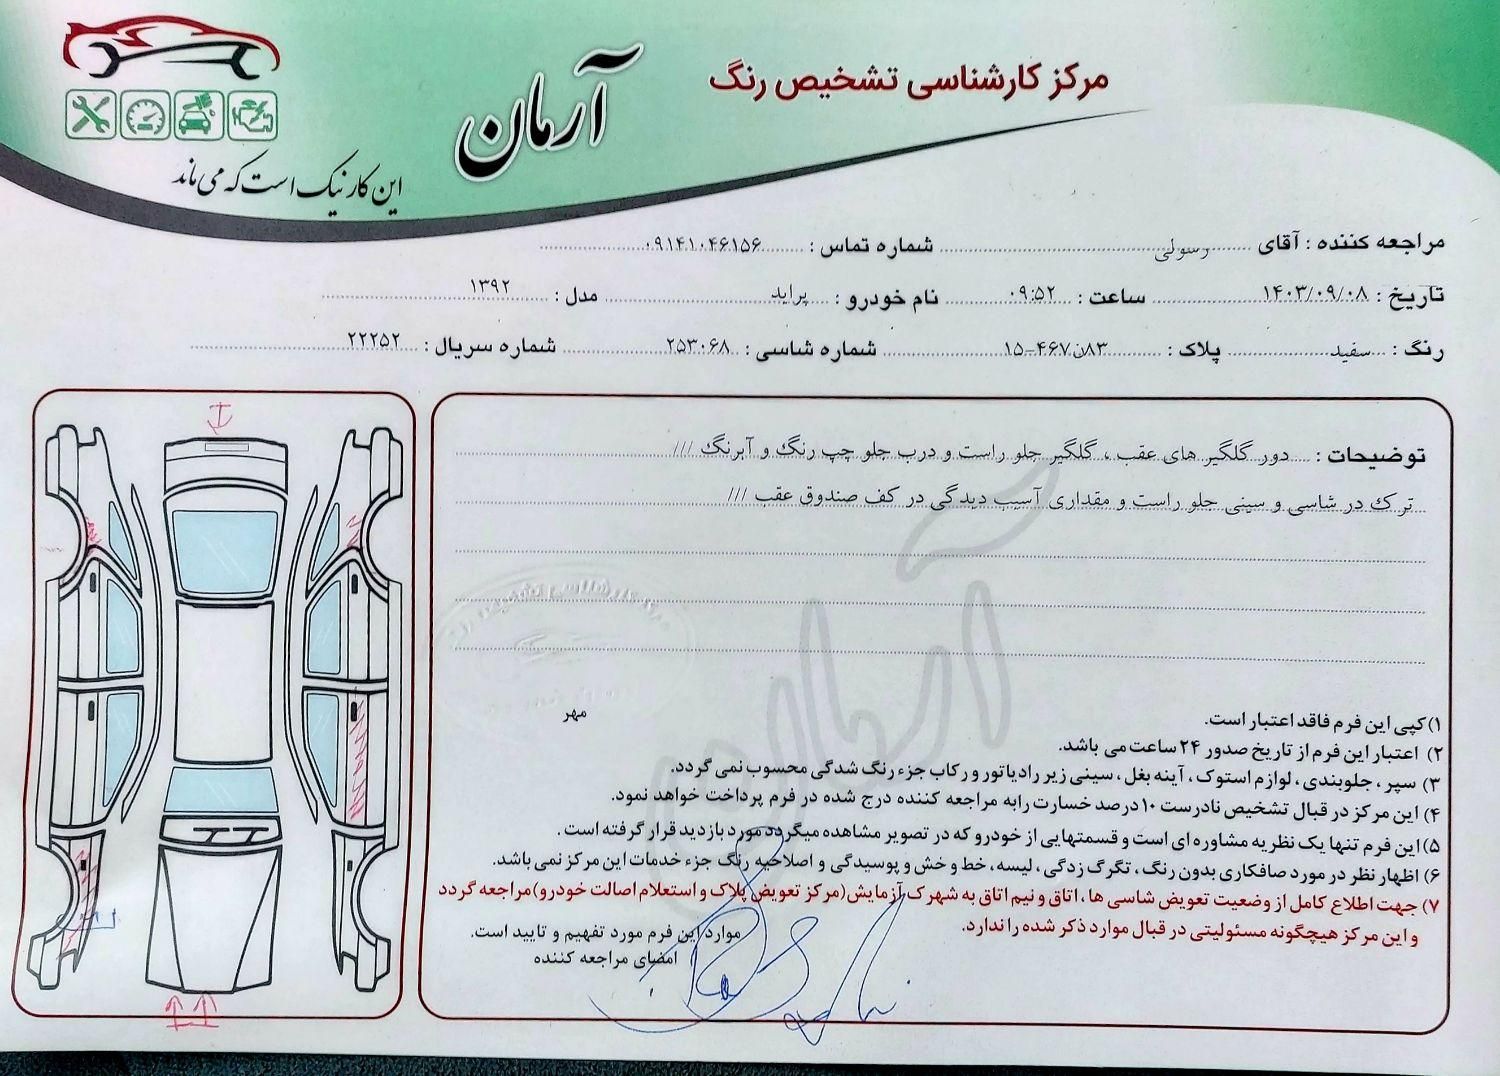 مرکز کارشناسی تشخیص رنگ
آرمان
این کار نیک است که می ماند
مراجعه کننده : آقای رسولی شماره تماس : ۰۹۱۴۱۰۴۶۱۵۶
تاریخ : ۱۴۰۳/۰۹/۰۸ ساعت : ۰۹:۵۲ نام خودرو : پراید مدل : ۱۳۹۲
رنگ : سفید پلاک : ۸۳ن۴۶۷-۱۵ شماره شاسی : ۲۵۳۰۶۸ شماره سریال : ۲۲۲۵۲
توضیحات : دور گلگیر های عقب ، گلگیر جلو راست و درب جلو چپ رنگ و آبرنگ ///
ترک در شاسی و سینی جلو راست و مقداری آسیب دیدگی در کف صندوق عقب ///
مهر
۱) کپی این فرم فاقد اعتبار است.
۲) اعتبار این فرم از تاریخ صدور ۲۴ ساعت می باشد.
۳) سپر ، جلوبندی ، لوازم استوک ، آینه بغل ، سینی زیر رادیاتور و رکاب جزء رنگ شدگی محسوب نمی گردد.
۴) این مرکز در قبال تشخیص نادرست ۱۰ درصد خسارت را به مراجعه کننده درج شده در فرم پرداخت خواهد نمود.
۵) این فرم تنها یک نظریه مشاوره ای است و قسمتهایی از خودرو که در تصویر مشاهده میگردد مورد بازدید قرار گرفته است .
۶) اظهار نظر در مورد صافکاری بدون رنگ ، تگرگ زدگی ، لیسه ، خط و خش و پوسیدگی و اصلاحیه رنگ جزء خدمات این مرکز نمی باشد.
۷) جهت اطلاع کامل از وضعیت تعویض شاسی ها ، اتاق و نیم اتاق به شهرک آزمایش (مرکز تعویض پلاک و استعلام اصالت خودرو) مراجعه گردد
و این مرکز هیچگونه مسئولیتی در قبال موارد ذکر شده را ندارد.
موارد این فرم مورد تفهیم و تایید است.
امضای مراجعه کننده